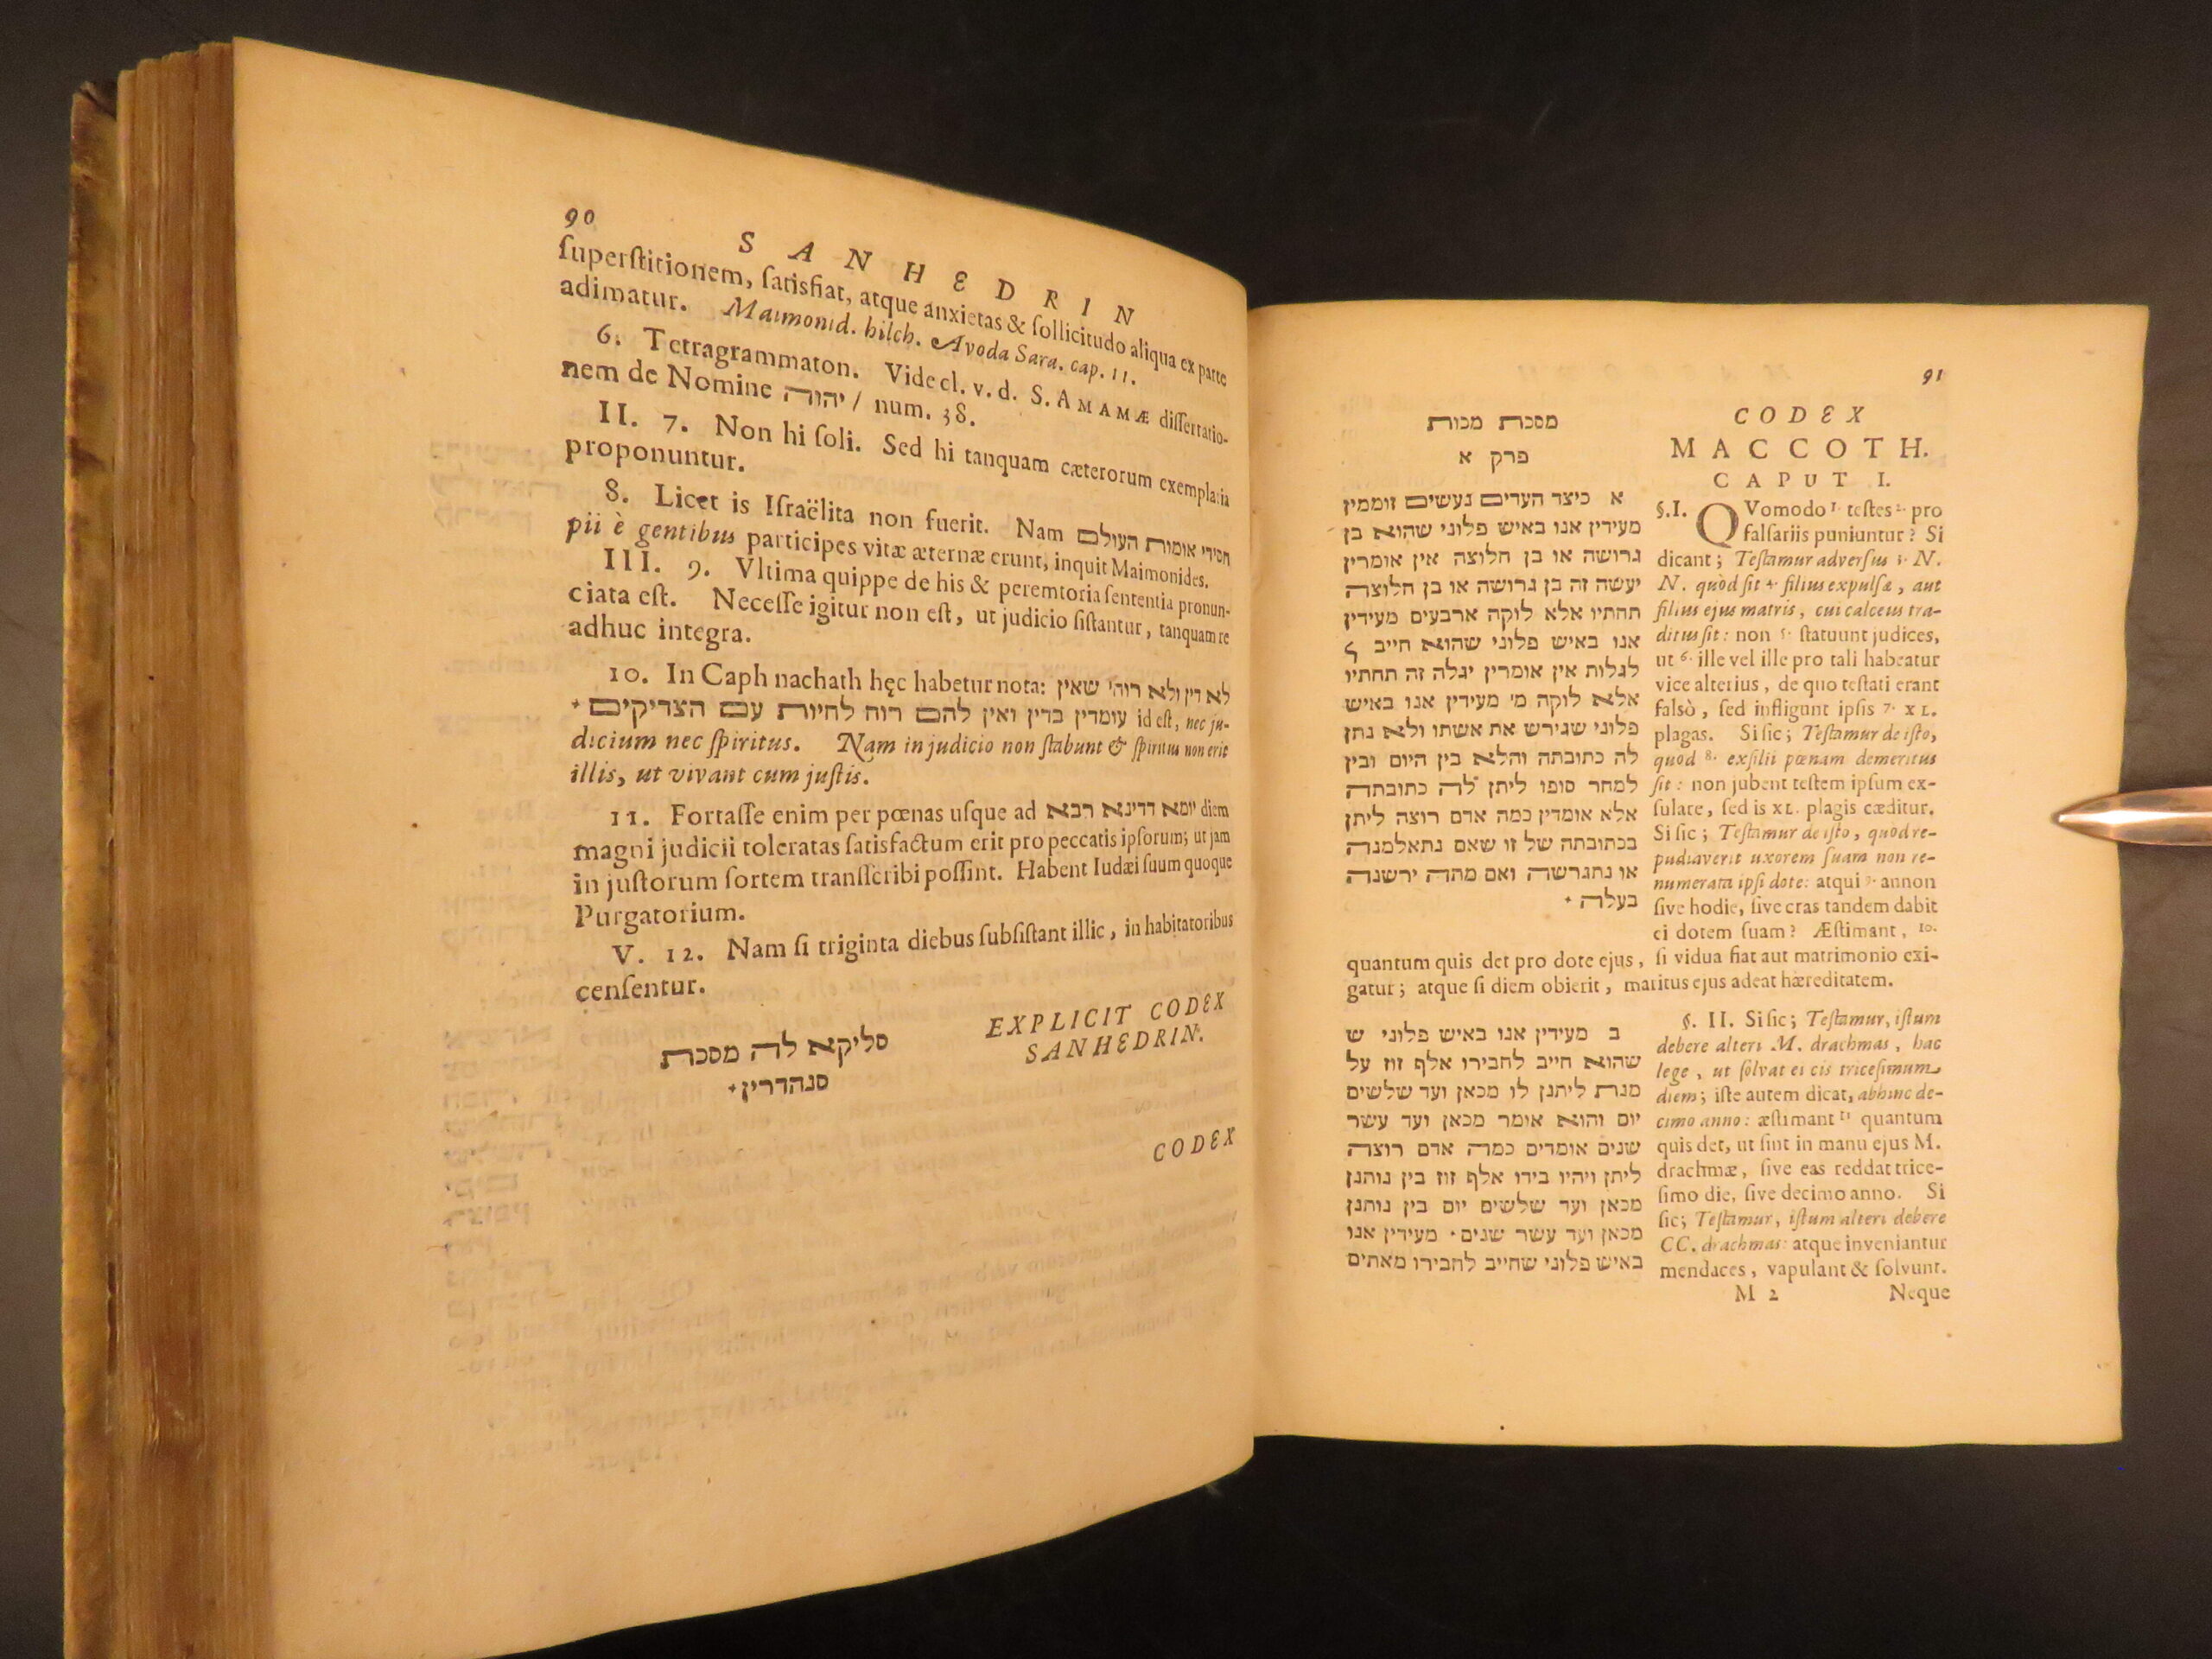 90
SANHEDRIN
ſuperſtitionem, ſatisfiat, atque anxietas & ſollicitudo aliqua ex parte
adimatur. Maimonid. hilch. Avoda Sara. cap. 11.
6. Tetragrammaton. Vide cl. v. d. S. AMAMÆ diſſertatio-
nem de Nomine יהוה / num. 38.
II. 7. Non hi ſoli. Sed hi tanquam cæterorum exemplaria
proponuntur.
8. Licet is Iſraëlita non fuerit. Nam חסידי אומות העולם
pii è gentibus participes vitæ æternæ erunt, inquit Maimonides.
III. 9. Vltima quippe de his & peremtoria ſententia pronun-
ciata eſt. Neceſſe igitur non eſt, ut judicio ſiſtantur, tanquam re
adhuc integra.
10. In Caph nachath hęc habetur nota: לא דין ולא רוהי שאין
עומדין בדין ואין להם רוח לחיות עם הצדיקים id eſt, nec ju-
dicium nec ſpiritus. Nam in judicio non ſtabunt & ſpiritus non erit
illis, ut vivant cum juſtis.
11. Fortaſſe enim per pœnas uſque ad יומא דדינא רבא diem
magni judicii toleratas ſatisfactum erit pro peccatis ipſorum; ut jam
in juſtorum ſortem tranſcribi poſſint. Habent Iudæi ſuum quoque
Purgatorium.
V. 12. Nam ſi triginta diebus ſubſiſtant illic, in habitatoribus
cenſentur.
סליקא לה מסכת
סנהדרין
EXPLICIT CODEX
SANHEDRIN.
CODEX
91
מסכת מכות
פרק א
א כיצד העדים נעשים זוממין
מעידין אנו באיש פלוני שהוא בן
גרושה או בן חלוצה אין אומרין
יעשה זה בן גרושה או בן חלוצה
תחתיו אלא לוקה ארבעים מעידין
אנו באיש פלוני שהוא חייב
לגלות אין אומרין יגלה זה תחתיו
אלא לוקה מ' מעידין אנו באיש
פלוני שגירש את אשתו ולא נתן
לה כתובתה והלא בין היום ובין
למחר סופו ליתן לה כתובתה
אלא אומדין כמה אדם רוצה ליתן
בכתובתה של זו שאם נתאלמנה
או נתגרשה ואם מתה ירשנה
בעלה
CODEX
MACCOTH.
CAPUT I.
§. I. QVomodo 1. teſtes 2. pro
falſariis puniuntur? Si
dicant; Teſtamur adverſus 3. N.
N. quòd ſit 4. filius expulſæ, aut
filius ejus matris, cui calceus tra-
ditus ſit: non 5. ſtatuunt judices,
ut 6. ille vel ille pro tali habeatur
vice alterius, de quo teſtati erant
falsò, ſed infligunt ipſis 7. XL.
plagas. Si ſic; Teſtamur de iſto,
quod 8. exſilii pœnam demeritus
ſit: non jubent teſtem ipſum ex-
ſulare, ſed is XL. plagis cæditur.
Si ſic; Teſtamur de iſto, quod re-
pudiaverit uxorem ſuam non re-
numerata ipſi dote: atqui 9. annon
ſive hodie, ſive cras tandem dabit
ei dotem ſuam? Æſtimant, 10.
quantum quis det pro dote ejus, ſi vidua fiat aut matrimonio exi-
gatur; atque ſi diem obierit, maritus ejus adeat hæreditatem.
ב מעידין אנו באיש פלוני ש
שהוא חייב לחבירו אלף זוז על
מנת ליתנן לו מכאן ועד שלשים
יום והוא אומר מכאן ועד עשר
שנים אומדים כמה אדם רוצה
ליתן ויהיו בידו אלף זוז בין נותנן
מכאן ועד שלשים יום בין נותנן
מכאן ועד עשר שנים · מעידין אנו
באיש פלוני שחייב לחבירו מאתים
§. II. Si ſic; Teſtamur, iſtum
debere alteri M. drachmas, hac
lege, ut ſolvat ei cis triceſimum
diem; iſte autem dicat, abhinc de-
cimo anno: æſtimant 11 quantum
quis det, ut ſint in manu ejus M.
drachmæ, ſive eas reddat trice-
ſimo die, ſive decimo anno. Si
ſic; Teſtamur, iſtum alteri debere
CC. drachmas: atque inveniantur
mendaces, vapulant & ſolvunt.
M 2 Neque